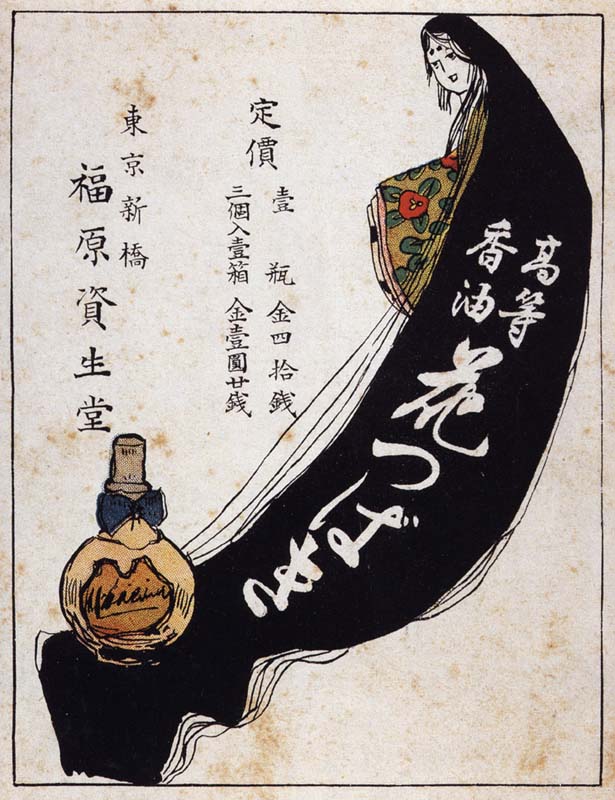 高等
香油
花つばき
定價
壹瓶金四拾錢
三個入壹箱金壹圓廿錢
東京新橋
福原資生堂